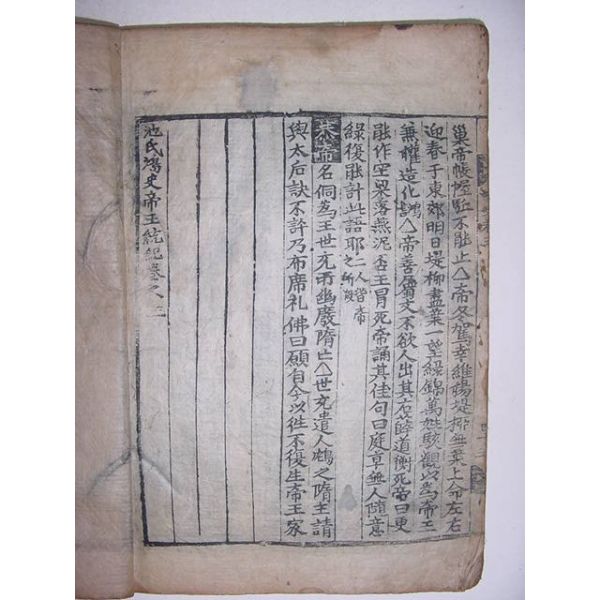 巢帝帳幄뜨不能止△帝冬駕幸維揚堤柳無葉上命左右
迎春于東郊明日堤柳盡葉一望綠錦萬姓駭觀以爲帝王
無權造化鴻△帝善屬文不欲人出其右薛道衡死帝曰更
能作空梁落燕泥否王冑死帝誦其佳句曰庭草無人隨意
綠復能計此語耶二人皆帝之所殺
恭帝名侗爲王世充所幽廢隋亡△世充遣人鴆之隋主請
與太后訣不許乃布席礼佛曰願自今以徃不復生帝王家
池氏鴻史帝王統紀卷之三